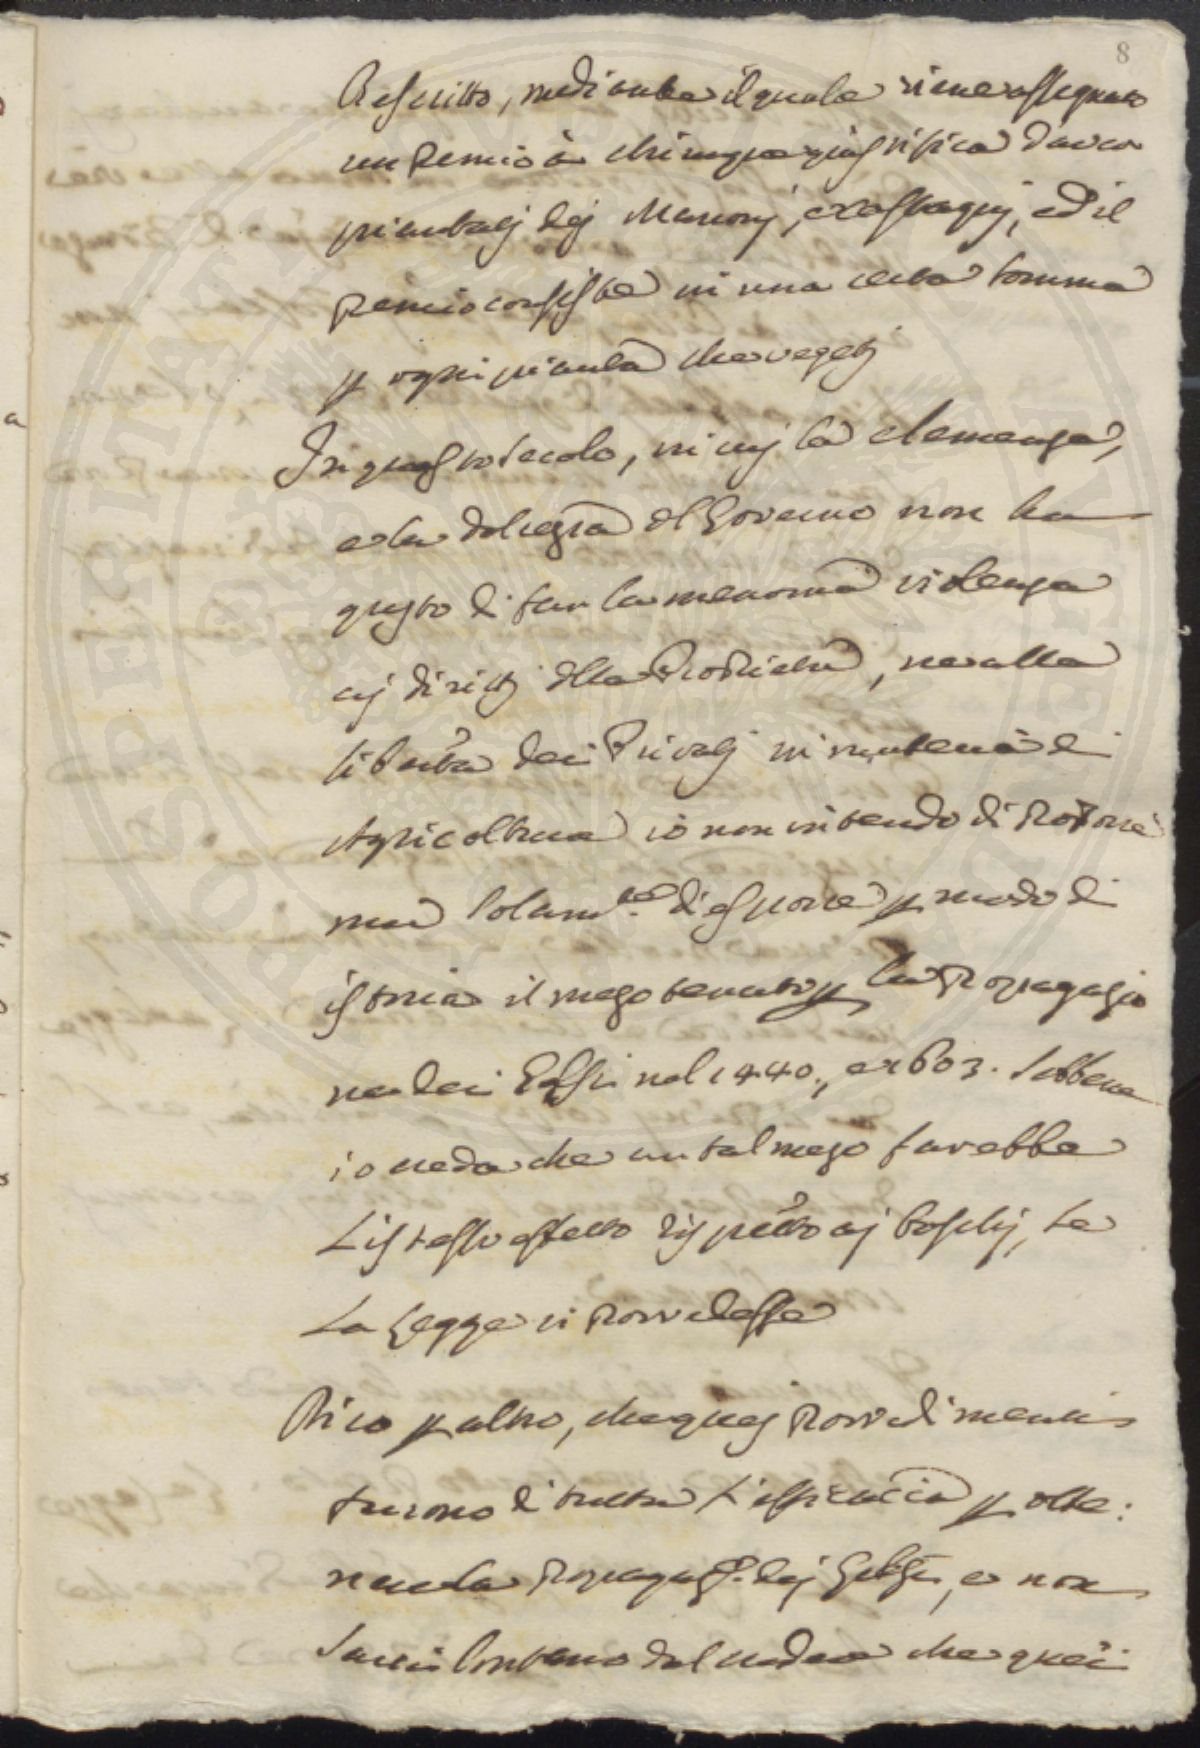 8
Rescritto, mediante il quale viene assegnato
un Premio à chiunque giustifica d'aver
piantati dei Marroni, e Castagni, ed il
Premio consiste in una certa somma
p ogni pianta che vegeti
In questo secolo, in cui la clemenza,
e la dolcezza del Governo non ha
gusto di far la menoma violenza
ai diritti della Proprietà, ne alla
libertà dei Privati in materia di
Agricoltura io non intendo di Proporre
ma solam.te di esporre p modo di
istoria il mezo tenuto p la Propagazio
ne dei Gelsi nel 1440., e 1603. Sebbene
io creda che un tal mezo farebbe
L'istesso effetto rispetto ai boschi, se
La Legge vi Provvedesse
Dico p altro, che quei Provvedimenti
furono di tutta L'efficaccia p otte:
nere la Propagaz.e dei Gelsi, e non
sarei lontano dal credere che quei